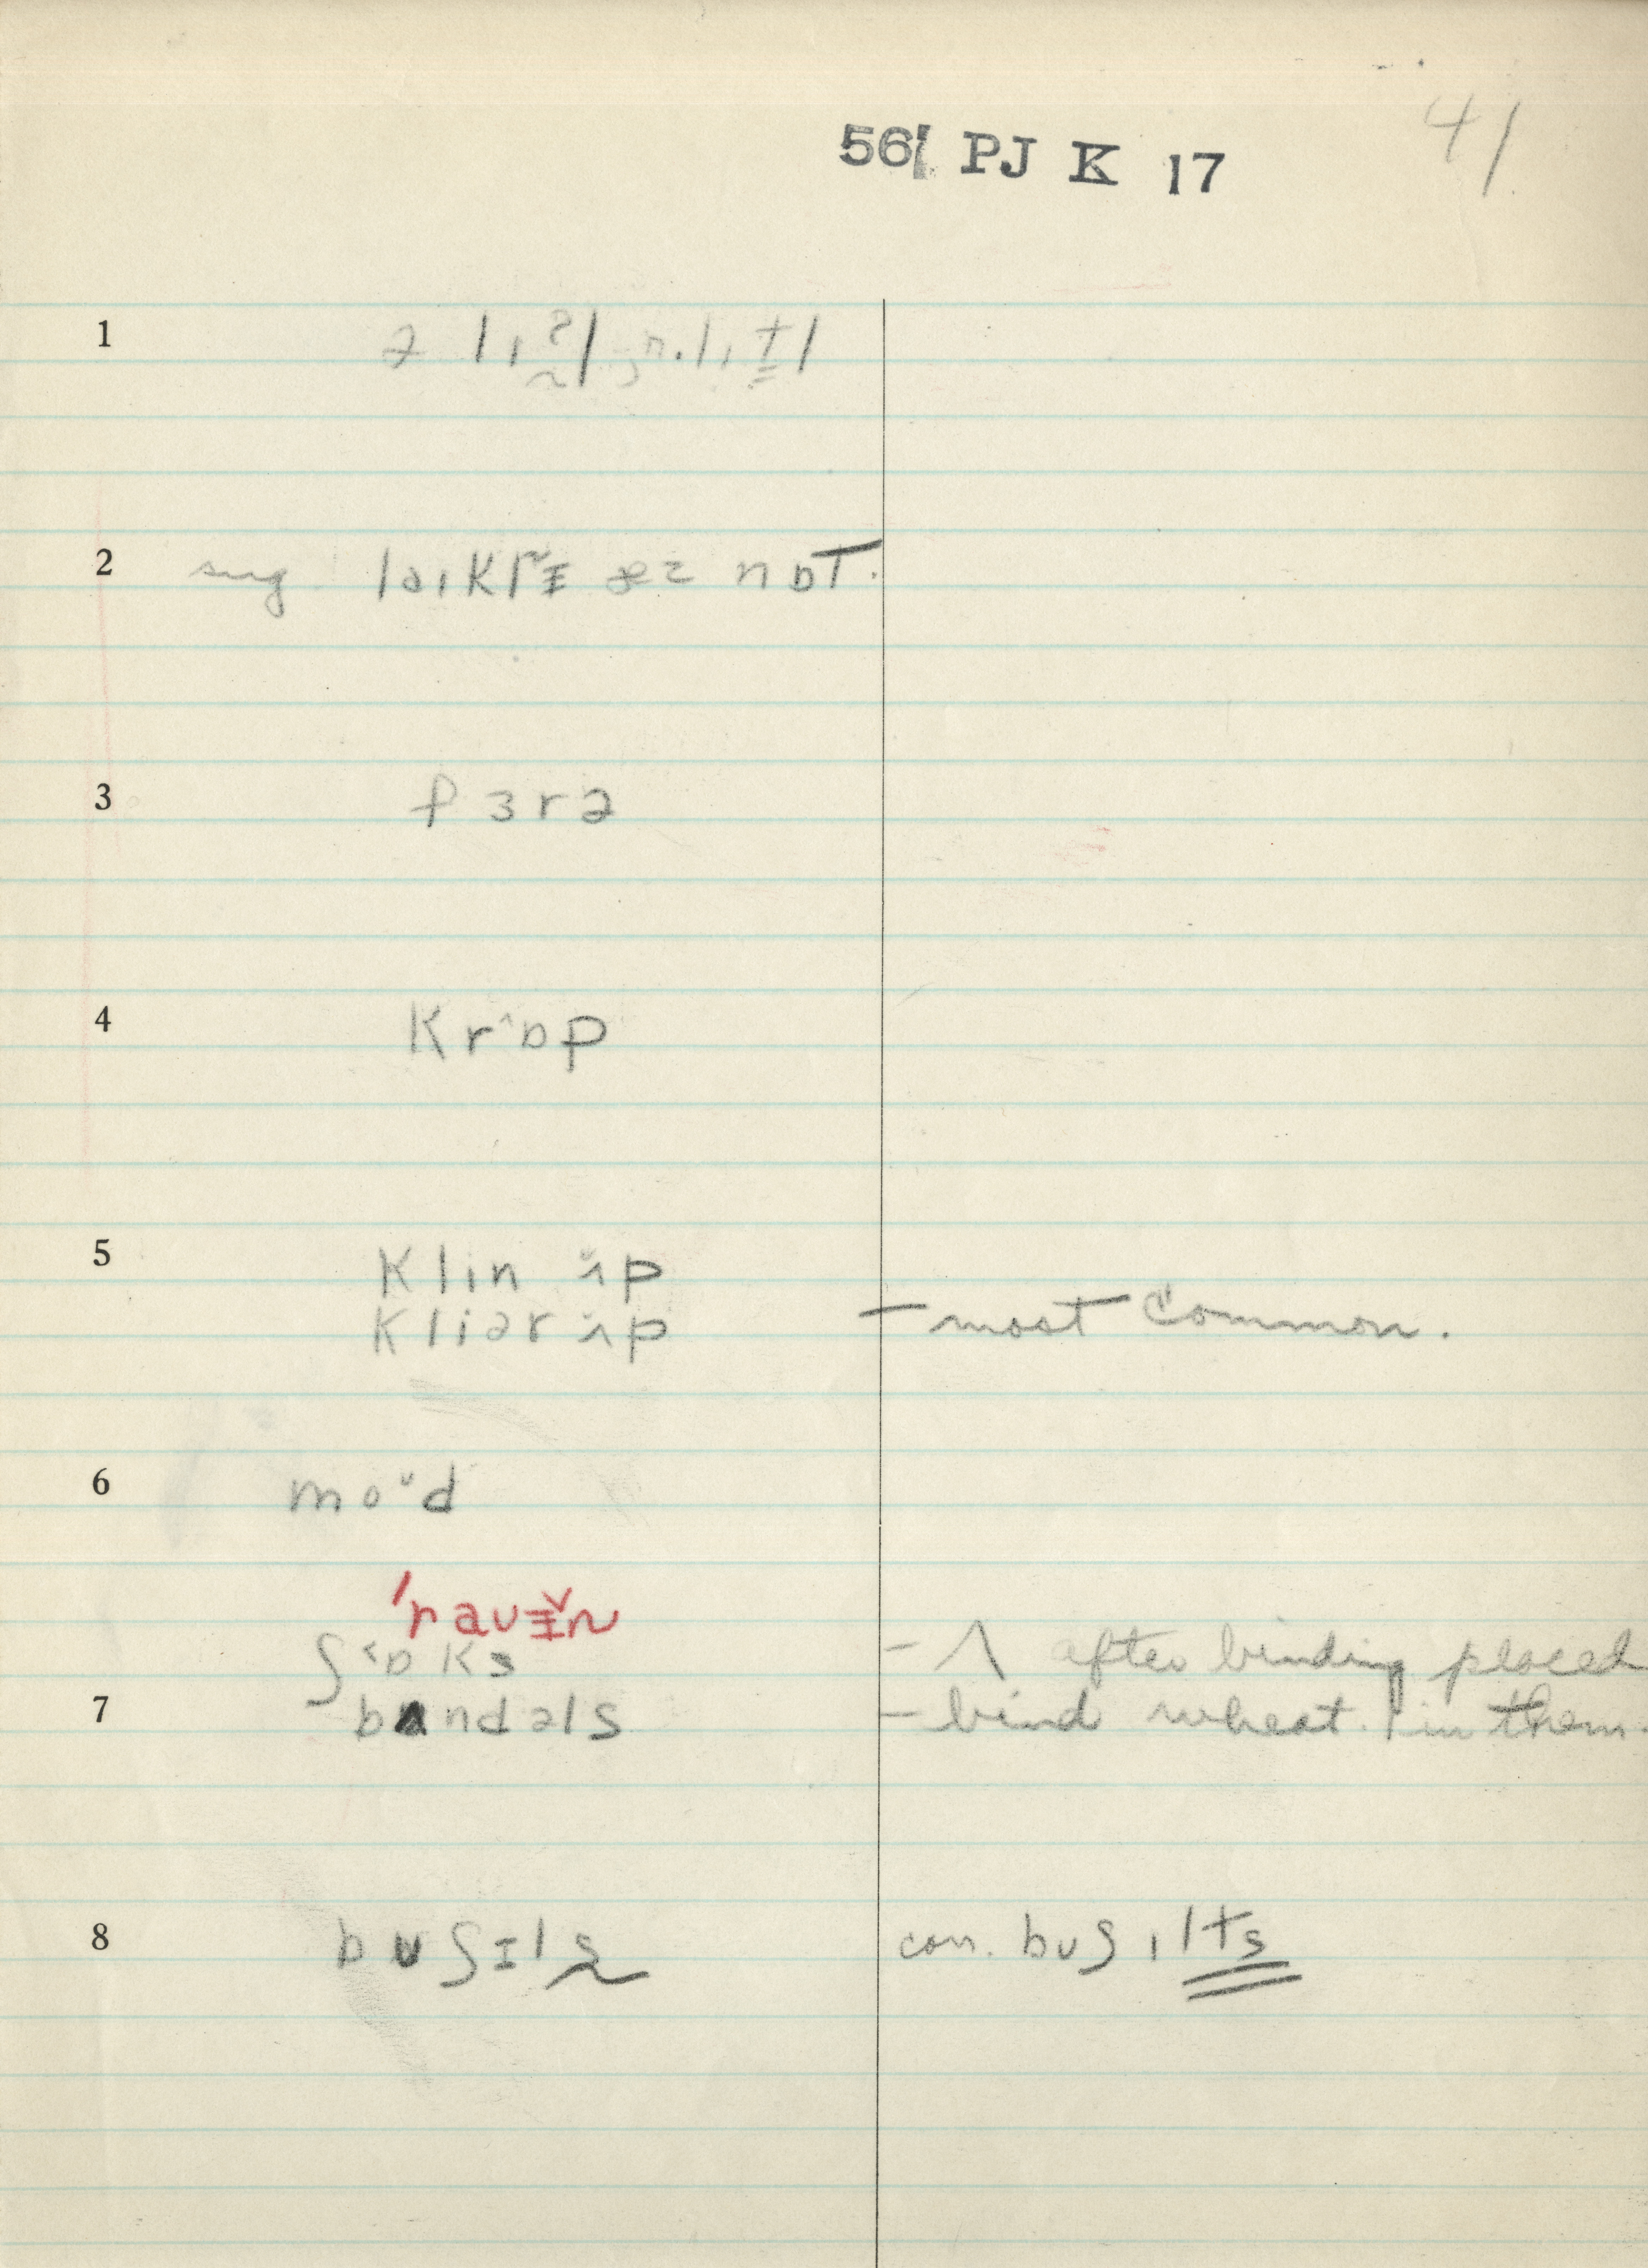 41
561 PJ K 17
1
2 sug laɪklɪ̵̆ æz nɒT.
3 fɜrə
4 Krˆɒp
5 Klin ʌ̆p
Kliər ʌ̆p - most common.
6 moᵕd
'raʊɪ̵̆n
ʃ˂ɒKs - Λ after binding placed
7 bʌndəls - bind wheat. | in them.
8 bʊʃɪls con. bʊʃɪlts